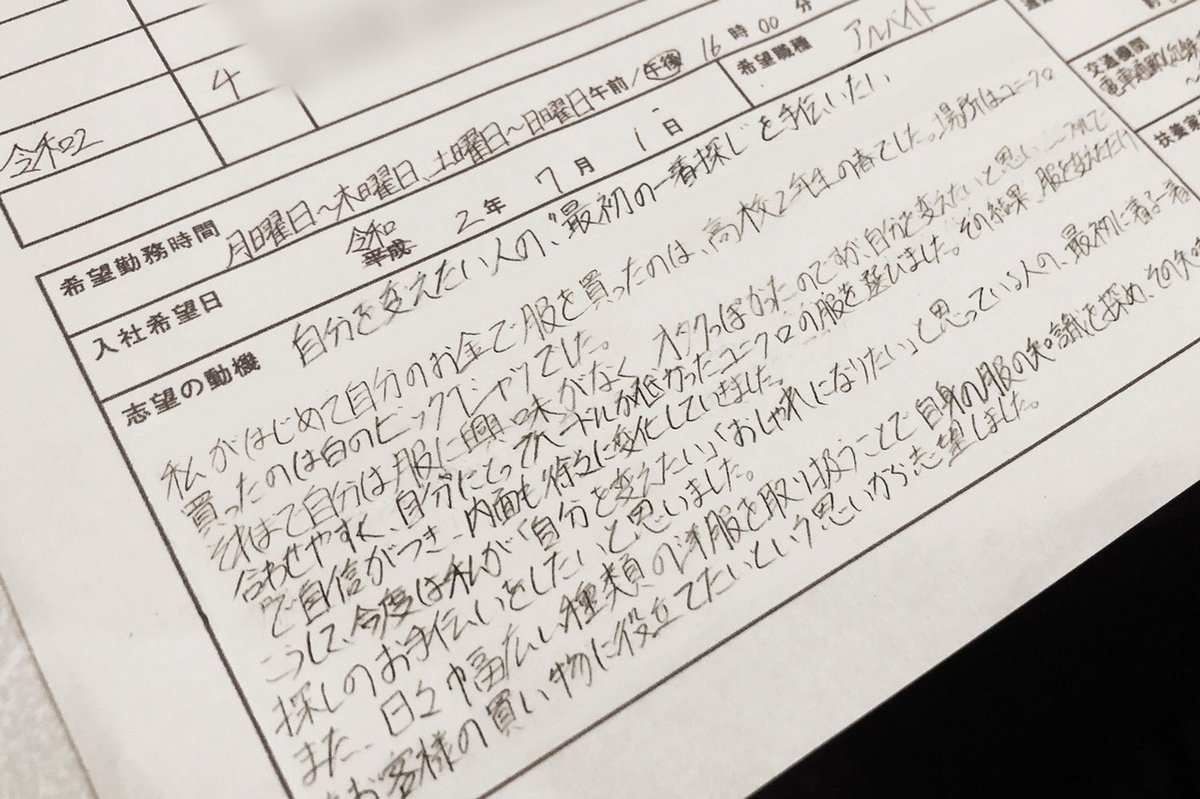 4
令和2
希望勤務時間 月曜日〜木曜日、土曜日〜日曜日 午前/午後 16時00分
希望職種 アルバイト
交通機関
入社希望日 令和 平成 2年 7月 1日
志望の動機 自分を変えたい人の、"最初の一着探し"を手伝いたい
私がはじめて自分のお金で服を買ったのは、高校2年生の春でした。場所はユニクロ
買ったのは白のビックTシャツでした。
それまで自分は服に興味がなく、オタクっぽかったのですが、自分を変えたいと思い
合わせやすく、自分にとってハードルが低かったユニクロの服を選びました。その結果、服を変えただけ
で自信がつき、内面も徐々に変化していきました。
こうして、今度は私が「自分を変えたい」「おしゃれになりたい」と思っている人の、最初に着る一着
探しのお手伝いをしたいと思いました。
また、日々幅広い種類の洋服を取り扱うことで自身の服の知識を深め、その知
お客様の買い物に役立てたいという思いから志望しました。